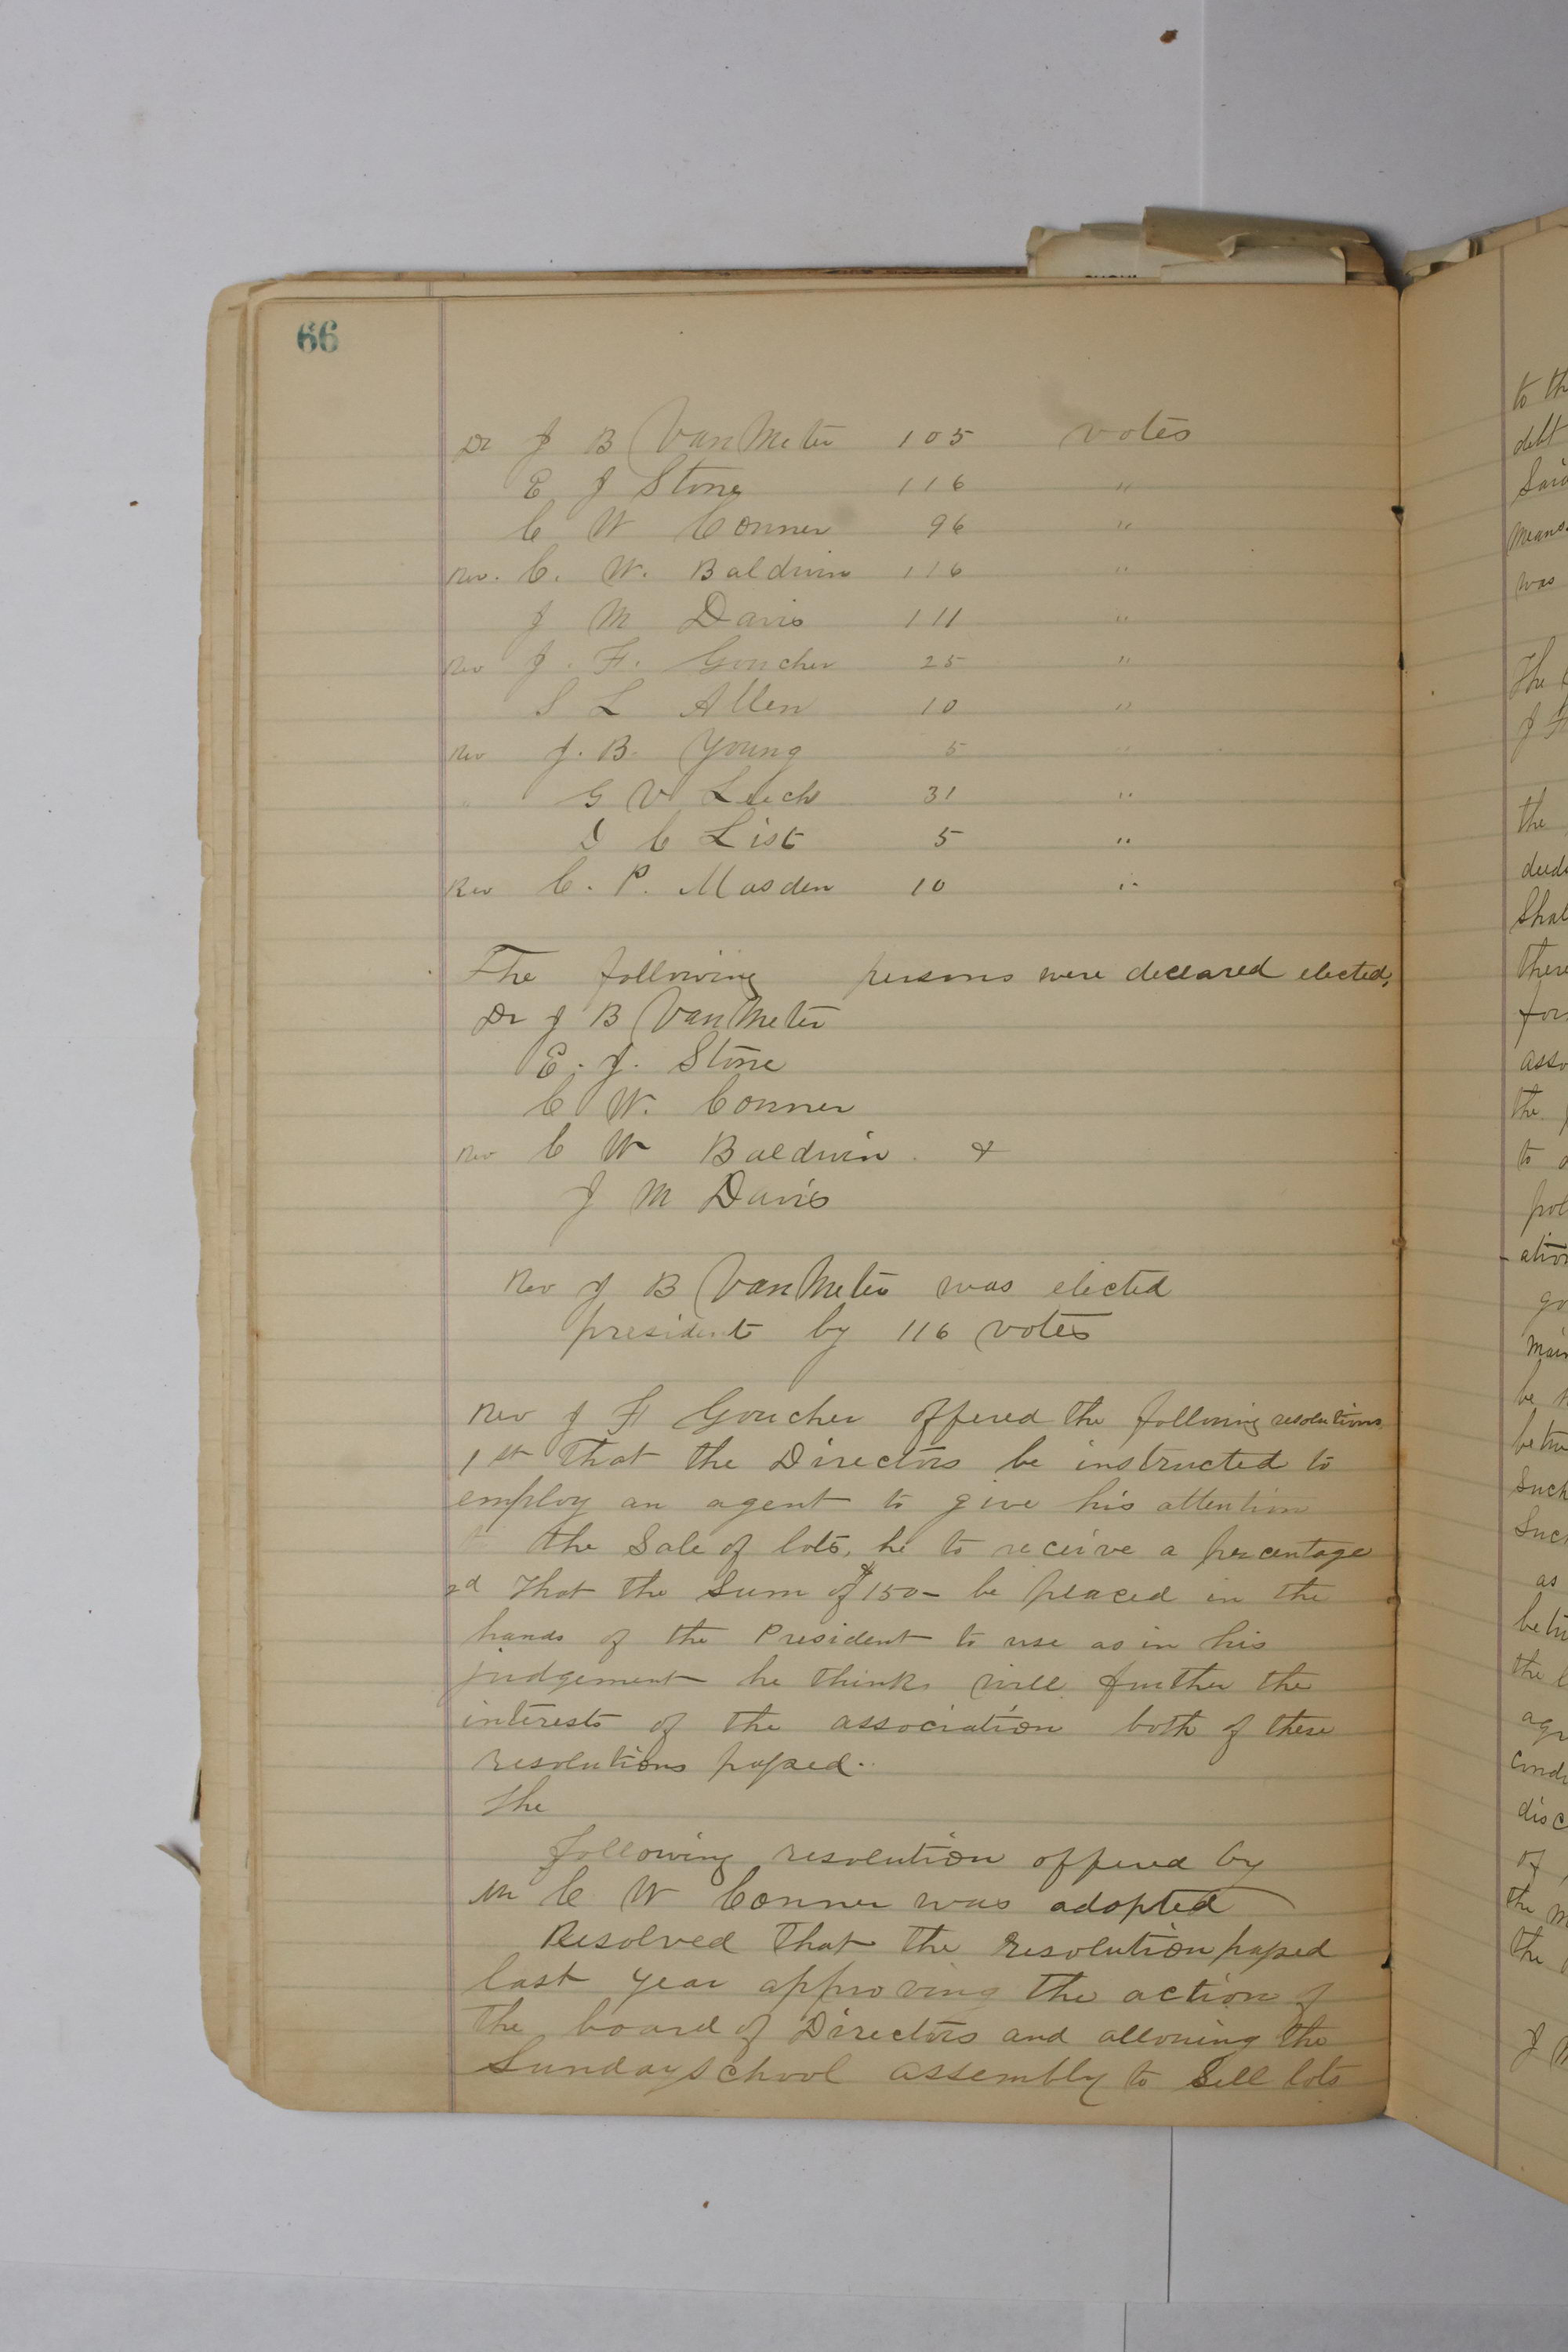 66
Dr J B Van Meter 105 votes
E J Stone 116 "
C W Conner 96 "
Rev. C. W. Baldwin 116 "
J M Davis 111 "
Rev J. F. Goucher 25 "
S L Allen 10 "
Rev J. B. Young 5 "
" G V Leech 31 "
D C List 5 "
Rev C. P. Masden 10 "
The following persons were declared elected,
Dr J B Van Meter
E. J. Stone
C W. Conner
Rev C W Baldwin &
J M Davis
Rev J B Van Meter was elected
president by 116 votes
Rev J F Goucher offered the following resolutions
1st That the Directors be instructed to
employ an agent to give his attention
to the Sale of lots, he to receive a percentage
2d That the Sum of $150- be placed in the
hands of the President to use as in his
judgement he thinks will further the
interests of the association both of these
resolutions passed.
The
following resolution offered by
Mr C W Conner was adopted
Resolved That the resolution passed
last year approving the action of
the board of Directors and allowing the
Sunday school assembly to Sell lots
to th
debt
Said
means
was
The
J F
the
deeds
Shal
there
for
asso
the
to
pol
ation
go
main
be
betw
Such
Such
as
betw
the
agr
condi
disc
of
the M
the
J